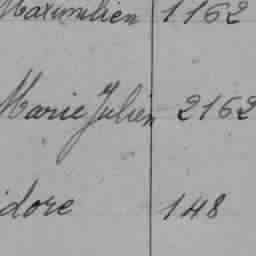 Maximilien 1162
Marie Julien 2162
idore 148